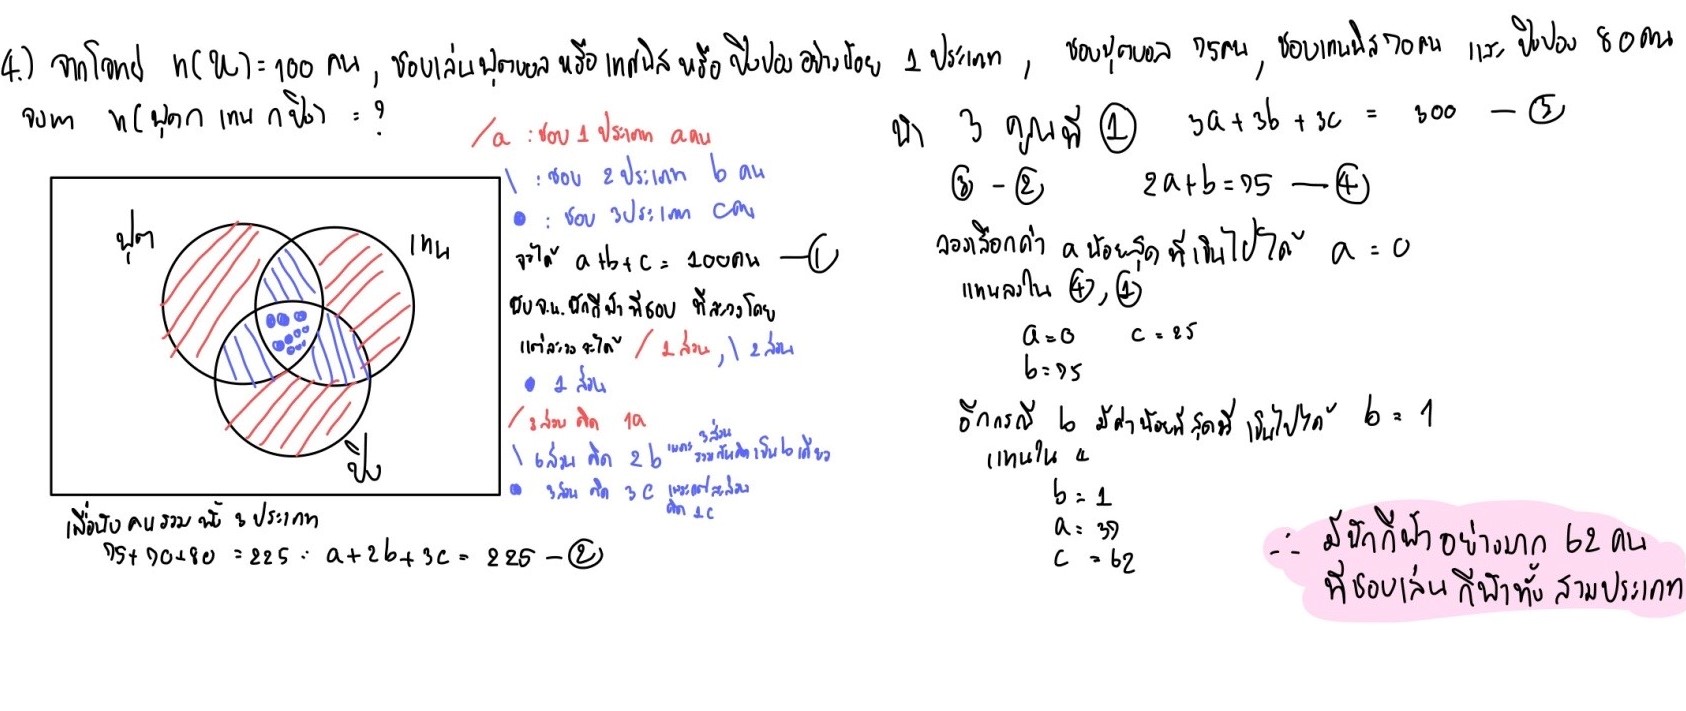 4.) จากโจทย์ n(U) = 100 คน, ชอบเล่นฟุตบอล หรือ เทนนิส หรือ ปิงปอง อย่างน้อย 1 ประเภท, ชอบฟุตบอล 75คน, ชอบเทนนิส 70คน และ ปิงปอง 80คน
จงหา n(ฟุต ∩ เทน ∩ ปิง) = ?
/a : ชอบ 1 ประเภท a คน
\ : ชอบ 2 ประเภท b คน
● : ชอบ 3 ประเภท c คน
จะได้ a+b+c = 100 คน — ①
นับจน.นักกีฬาที่ชอบ ที่ละวงโดย
แต่ละวงจะได้ / 1 ส่วน, \ 2 ส่วน
● 1 ส่วน
/ 3 ส่วน คิด 1a
\ 6 ส่วน คิด 2b เพราะ 3 ส่วน รวมกันคิดเป็น b เดียว
● 3 ส่วน คิด 3c เพราะแต่ละส่วน
คิด 1c
ฟุต
เทน
ปิง
เมื่อนับคนรวมทั้ง 3 ประเภท
75+70+80 = 225 ∴ a+2b+3c = 225 — ②
นำ 3 คูณที่ ① 3a+3b+3c = 300 — ③
③ - ② 2a+b = 75 — ④
ลองเลือกค่า a น้อยสุดที่เป็นไปได้ a = 0
แทนลงใน ④, ①
a = 0 c = 25
b = 75
อีกกรณี b มีค่าน้อยที่สุดที่เป็นไปได้ b = 1
แทนใน 4
b = 1
a = 37
c = 62
∴ มีนักกีฬาอย่างมาก 62 คน
ที่ชอบเล่นกีฬาทั้งสามประเภท